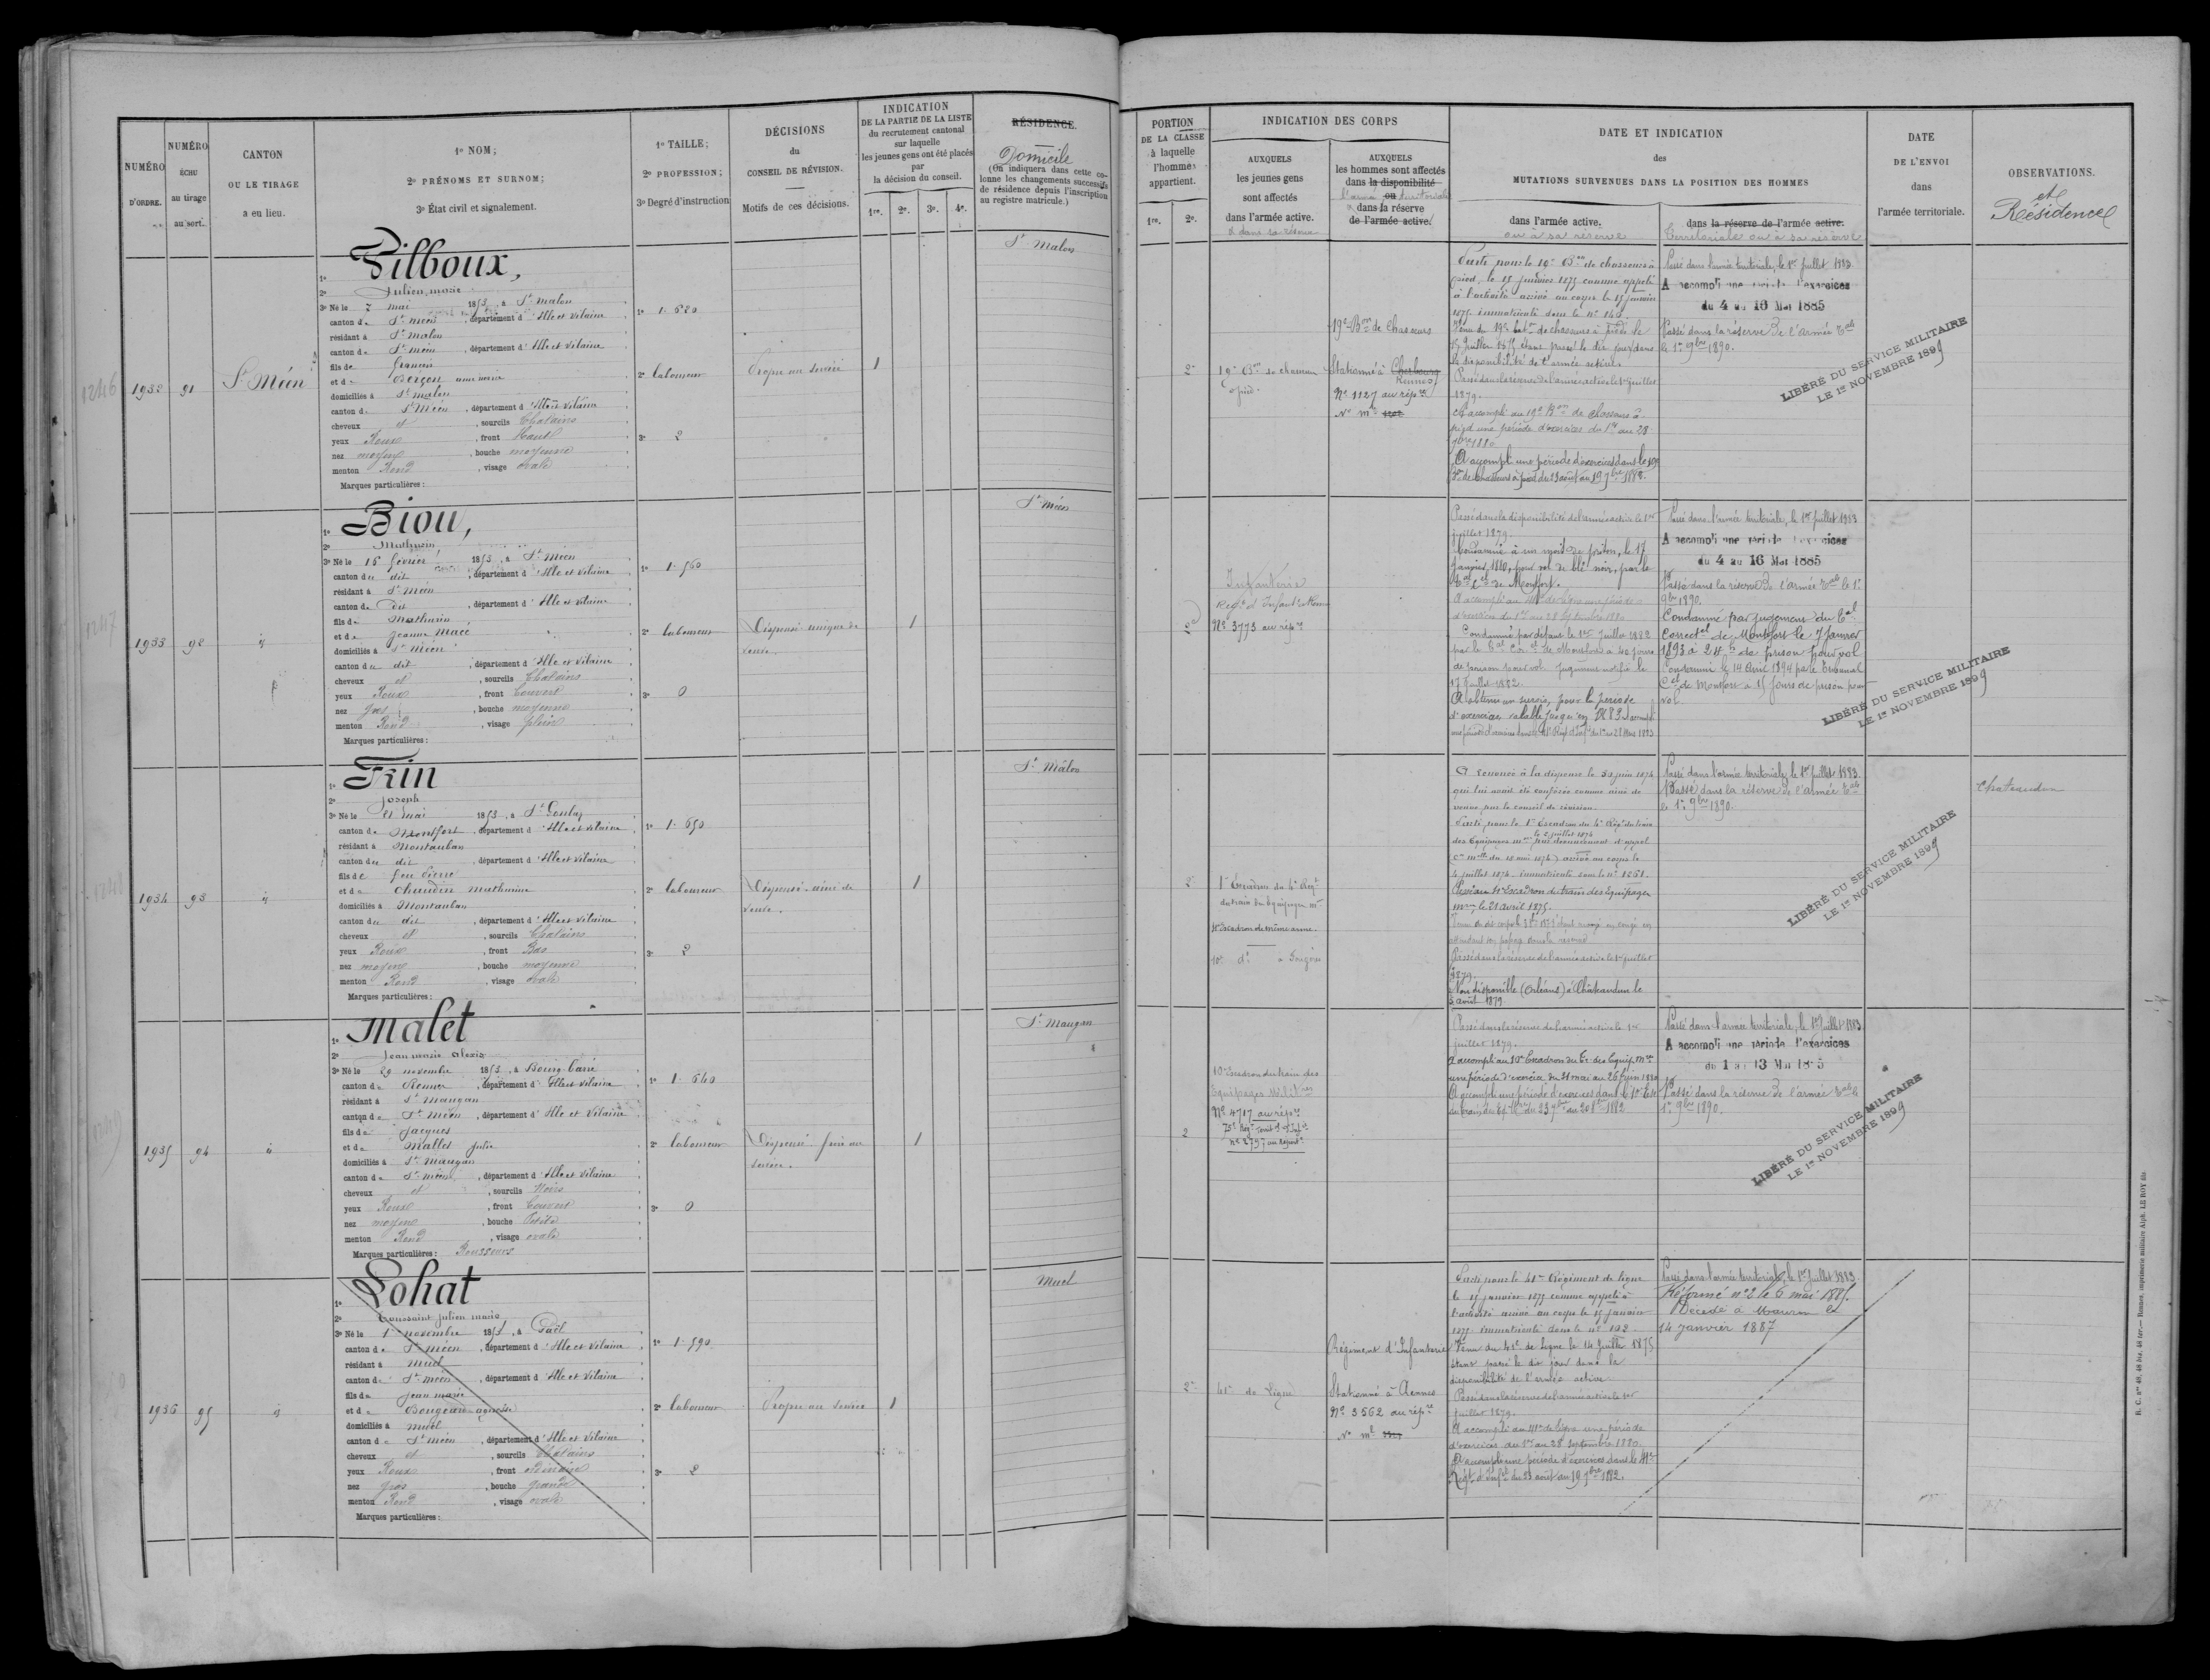 NUMÉRO D'ORDRE.
NUMÉRO ÉCHU au tirage au sort.
CANTON OU LE TIRAGE a eu lieu.
1º NOM;
2º PRÉNOMS ET SURNOM;
3º État civil et signalement.
1º TAILLE;
2º PROFESSION;
3º Degré d'instruction
DÉCISIONS du CONSEIL DE RÉVISION.
Motifs de ces décisions.
INDICATION
DE LA PARTIE DE LA LISTE
du recrutement cantonal
sur laquelle
les jeunes gens ont été placés
par
la décision du conseil.
1re. 2e. 3e. 4e.
RÉSIDENCE.
Domicile
(On indiquera dans cette colonne les changements successifs de résidence depuis l'inscription au registre matricule.)
PORTION
DE LA CLASSE
à laquelle
l'homme
appartient.
1re. 2e.
INDICATION DES CORPS
AUXQUELS
les jeunes gens
sont affectés
dans l'armée active.
et dans sa réserve
AUXQUELS
les hommes sont affectés
dans la disponibilité
ou
l'armée territoriale
dans la réserve
de l'armée active.
DATE ET INDICATION
des
MUTATIONS SURVENUES DANS LA POSITION DES HOMMES
dans l'armée active.
ou à sa réserve
dans la réserve de l'armée active.
Territoriale ou à sa réserve
DATE
DE L'ENVOI
dans
l'armée territoriale.
OBSERVATIONS.
et
Résidence
1246
1932
91
St Méen
1º Pilboux,
2º Julien marie
3º Né le 7 mai 1853, à St Malon
canton de St méen, département d'Ille et Vilaine
résidant à St malon
canton de St méen, département d'Ille et Vilaine
fils de François
et de Berson anne marie
domiciliés à St malon
canton de St Méen, département d'Ille et Vilaine
cheveux et, sourcils Chatains
yeux Roux, front Haut
nez moyen, bouche moyenne
menton Rond, visage ovale
Marques particulières:
1º 1.620
2º laboureur
3º 2
Propre au service
1
St Malon
2e
19e Bon de chasseurs à pied.
19e Bon de Chasseurs
Stationné à Cherbourg
Rennes
No 1127 au rép.re
Parti pour le 19e Bon de chasseurs à
pied, le 15 janvier 1875 comme appelé
à l'activité arrivé au corps le 15 janvier
Passé dans la réserve de l'armée active le 1er juillet
1879.
A accompli au 19e Bon de chasseurs à
pied une période d'exercices du 1er au 28
7bre 1880
A accompli une période d'exercices dans le 19e
Bon de Chasseurs à pied du 23 août au 19 7bre 1882.
Passé dans l'armée territoriale, le 1er Juillet 1883
A accompli une période d'exercices
du 4 au 16 Mai 1885
Passé dans la réserve de l'armée Tale
le 1er 9bre 1890.
LIBÉRÉ DU SERVICE MILITAIRE
LE 1er NOVEMBRE 1899
1247
1933
92
id
1º Biou,
2º Mathurin
3º Né le 16 février 1853, à St Méen
canton du dit, département d'Ille et Vilaine
résidant à St méen
canton du dit, département d'Ille et Vilaine
fils de Mathurin
et de Jeanne Macé
domiciliés à St Méen
canton du dit, département d'Ille et Vilaine
cheveux et, sourcils Chatains
yeux Roux, front Couvert
nez gros, bouche moyenne
menton Rond, visage plein
Marques particulières:
1º 1.560
2º laboureur
3º 0
Dispensé unique de
veuve.
1
St méen
2e
Infanterie
No 3773 au rép.re
Passé dans la disponibilité de l'armée active le 1er
juillet 1879.
Condamné à un mois de prison, le 17
janvier 1880, pour vol de blé noir, par le
Tal Cel de Montfort.
Condamné par défaut le 1er Juillet 1882
par le Tal Corel de Montfort à 40 jours
de prison pour vol. Jugement notifié le
17 Juillet 1882.
A obtenu un sursis pour la période
d'exercices valable jusqu'en 1883
Passé dans l'armée territoriale, le 1er Juillet 1883
A accompli une période d'exercices
du 4 au 16 Mai 1885
Passé dans la réserve de l'armée Tale le 1er
9bre 1890.
Condamné par jugement du Tal
Correctel de Montfort le 7 Janvier
1893 à 24 h de prison pour vol
Condamné le 14 avril 1894 par le Tribunal
Cel de Montfort à 15 jours de prison pour
vol
LIBÉRÉ DU SERVICE MILITAIRE
LE 1er NOVEMBRE 1899
1248
1934
93
id
1º Frin
2º Joseph
3º Né le 21 mai 1853, à St Gonlay
canton de Montfort, département d'Ille et Vilaine
résidant à Montauban
canton du dit, département d'Ille et Vilaine
fils de feu Pierre
et de Chaudin mathurine
domiciliés à Montauban
canton du dit, département d'Ille et Vilaine
cheveux et, sourcils Chatains
yeux Roux, front Bas
nez moyen, bouche moyenne
menton Rond, visage ovale
Marques particulières:
1º 1.650
2º laboureur
3º 2
Dispensé ainé de
veuve.
1
St Malon
2e
1er Escadron du 4e Régt
du train des Equipages mres
4e Escadron de même arme.
10e dº à Fougères
A renoncé à la dispense le 30 juin 1874
qui lui avait été conférée comme ainé de
veuve, par le conseil de révision.
Parti pour le 1er Escadron du 4e Régt du train
le 2 juillet 1874
4 juillet 1874 immatriculé sous le no 1261.
Passé au 4e Escadron du train des Equipages
mres, le 21 avril 1875.
Passé dans la réserve de l'armée active le 1er juillet
1879.
Non disponible (Orléans) à Châteaudun le
3 août 1879.
Passé dans l'armée territoriale, le 1er Juillet 1883.
Passé dans la réserve de l'armée Tale
le 1er 9bre 1890.
Chateaudun
LIBÉRÉ DU SERVICE MILITAIRE
LE 1er NOVEMBRE 1899
1249
1935
94
id
1º Malet
2º Jean marie Alexis
3º Né le 29 novembre 1853, à Bourg-barré
canton de Rennes, département d'Ille et Vilaine
résidant à St Maugan
canton de St Méen, département d'Ille et Vilaine
fils de Jacques
et de Mallet Julie
domiciliés à St Maugan
canton de St méen, département d'Ille et Vilaine
cheveux et, sourcils Noirs
yeux Roux, front Couvert
nez moyen, bouche Petite
menton Rond, visage ovale
Marques particulières: Rousseurs
1º 1.640
2º laboureur
3º 0
Dispensé frère au
service.
1
St Maugan
2
10e Escadron du train des
Equipages Militres
No 4717 au rép.re
75e Régt Territ d'Infie
No 2797 au répert.
Passé dans la réserve de l'armée active le 1er
juillet 1879.
A accompli au 10e Escadron du Tr. des Equip. Mres
une période d'exercice du 31 mai au 26 juin 1880
Passé dans l'armée territoriale, le 1er Juillet 1883
A accompli une période d'exercices
du 1 au 13 Mai 1885
Passé dans la réserve de l'armée Tale le
1er 9bre 1890.
LIBÉRÉ DU SERVICE MILITAIRE
LE 1er NOVEMBRE 1899
1936
95
id
1º Lohat
2º Toussaint Julien marie
3º Né le 1 novembre 1853, à Gaël
canton de St méen, département d'Ille et Vilaine
résidant à Muel
canton de St méen, département d'Ille et Vilaine
fils de Jean marie
et de Bougeard agnesse
domiciliés à Muel
canton de St méen, département d'Ille et Vilaine
cheveux et, sourcils Chatains
yeux Roux, front ordinaire
nez gros, bouche grande
menton Rond, visage ovale
Marques particulières:
1º 1.590
2º laboureur
3º 2
Propre au service
1
Muel
2e
41e de Ligne
Régiment d'Infanterie
Stationné à Rennes
No 3562 au rép.re
Parti pour le 41e Régiment de ligne
le 15 janvier 1875 comme appelé à
l'activité arrivé au corps le 15 janvier
1875. immatriculé sous le no 102
Venu du 41e de Ligne le 14 Juillet 1875
étant passé le dit jour dans la
disponibilité de l'armée active.
Passé dans la réserve de l'armée active le 1er
juillet 1879.
A accompli au 41e de ligne une période
d'exercices du 1er au 28 septembre 1880.
A accompli une période d'exercices dans le 41e
Régt d'Infie du 23 août au 19 7bre 1882.
Passé dans l'armée territoriale, le 1er Juillet 1883.
Réformé no 2 le 6 mai 1885.
Décédé à Mauron le
14 janvier 1887
R. C. nos 48, 48 bis, 48 ter.— Rennes, imprimerie militaire Alph. LE ROY fils